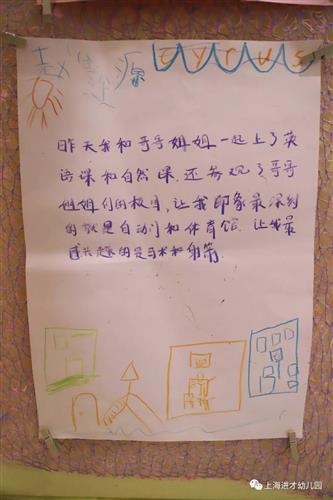 赵
源
CYRUS
昨天我和哥哥姐姐一起上了英
语课和自然课.还参观了哥哥
姐姐们的校园,让我印象最深刻
的就是自动门和体育馆.让我最
感兴趣的是马术和射箭.
上海进才幼儿园